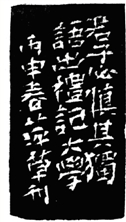 君子必慎其獨
語出禮記大學
丙申春